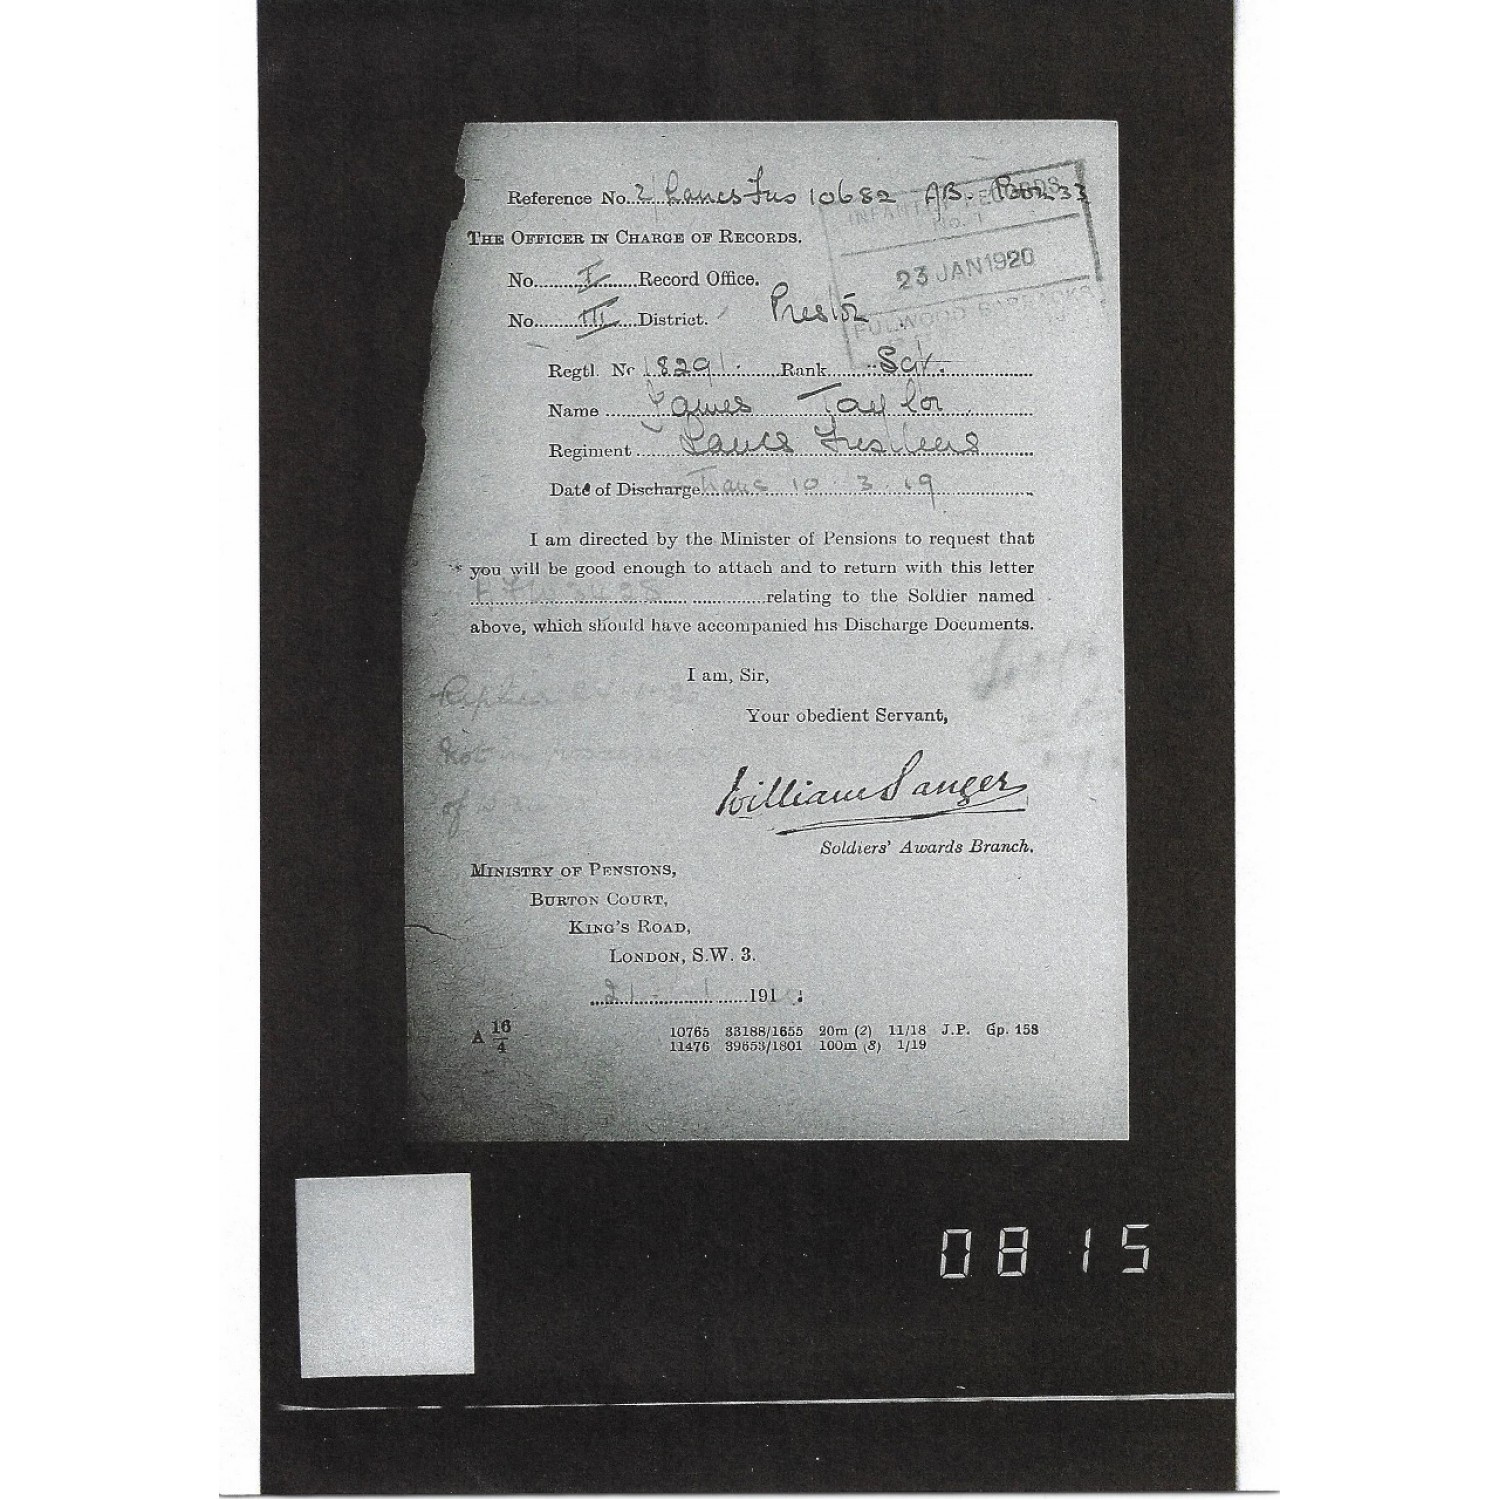 Reference No. 2/ Lancs Fus 10682 AB.
INFANTRY RECORDS
No. 1
THE OFFICER IN CHARGE OF RECORDS.
23 JAN 1920
No. I Record Office.
No. III District. Preston
FULWOOD BARRACKS
Regtl. No 18291. Rank Sgt.
Name James Taylor
Regiment Lancs Fusiliers
Date of Discharge Trans 10.3.19
I am directed by the Minister of Pensions to request that
you will be good enough to attach and to return with this letter
relating to the Soldier named
above, which should have accompanied his Discharge Documents.
I am, Sir,
Your obedient Servant,
Not in possession
of
William Sanger
Soldiers' Awards Branch.
MINISTRY OF PENSIONS,
BURTON COURT,
KING'S ROAD,
LONDON, S.W. 3.
191
A 16/4
10765 33188/1655 20m (2) 11/18 J.P. Gp. 158
11476 39653/1801 100m (8) 1/19
0815